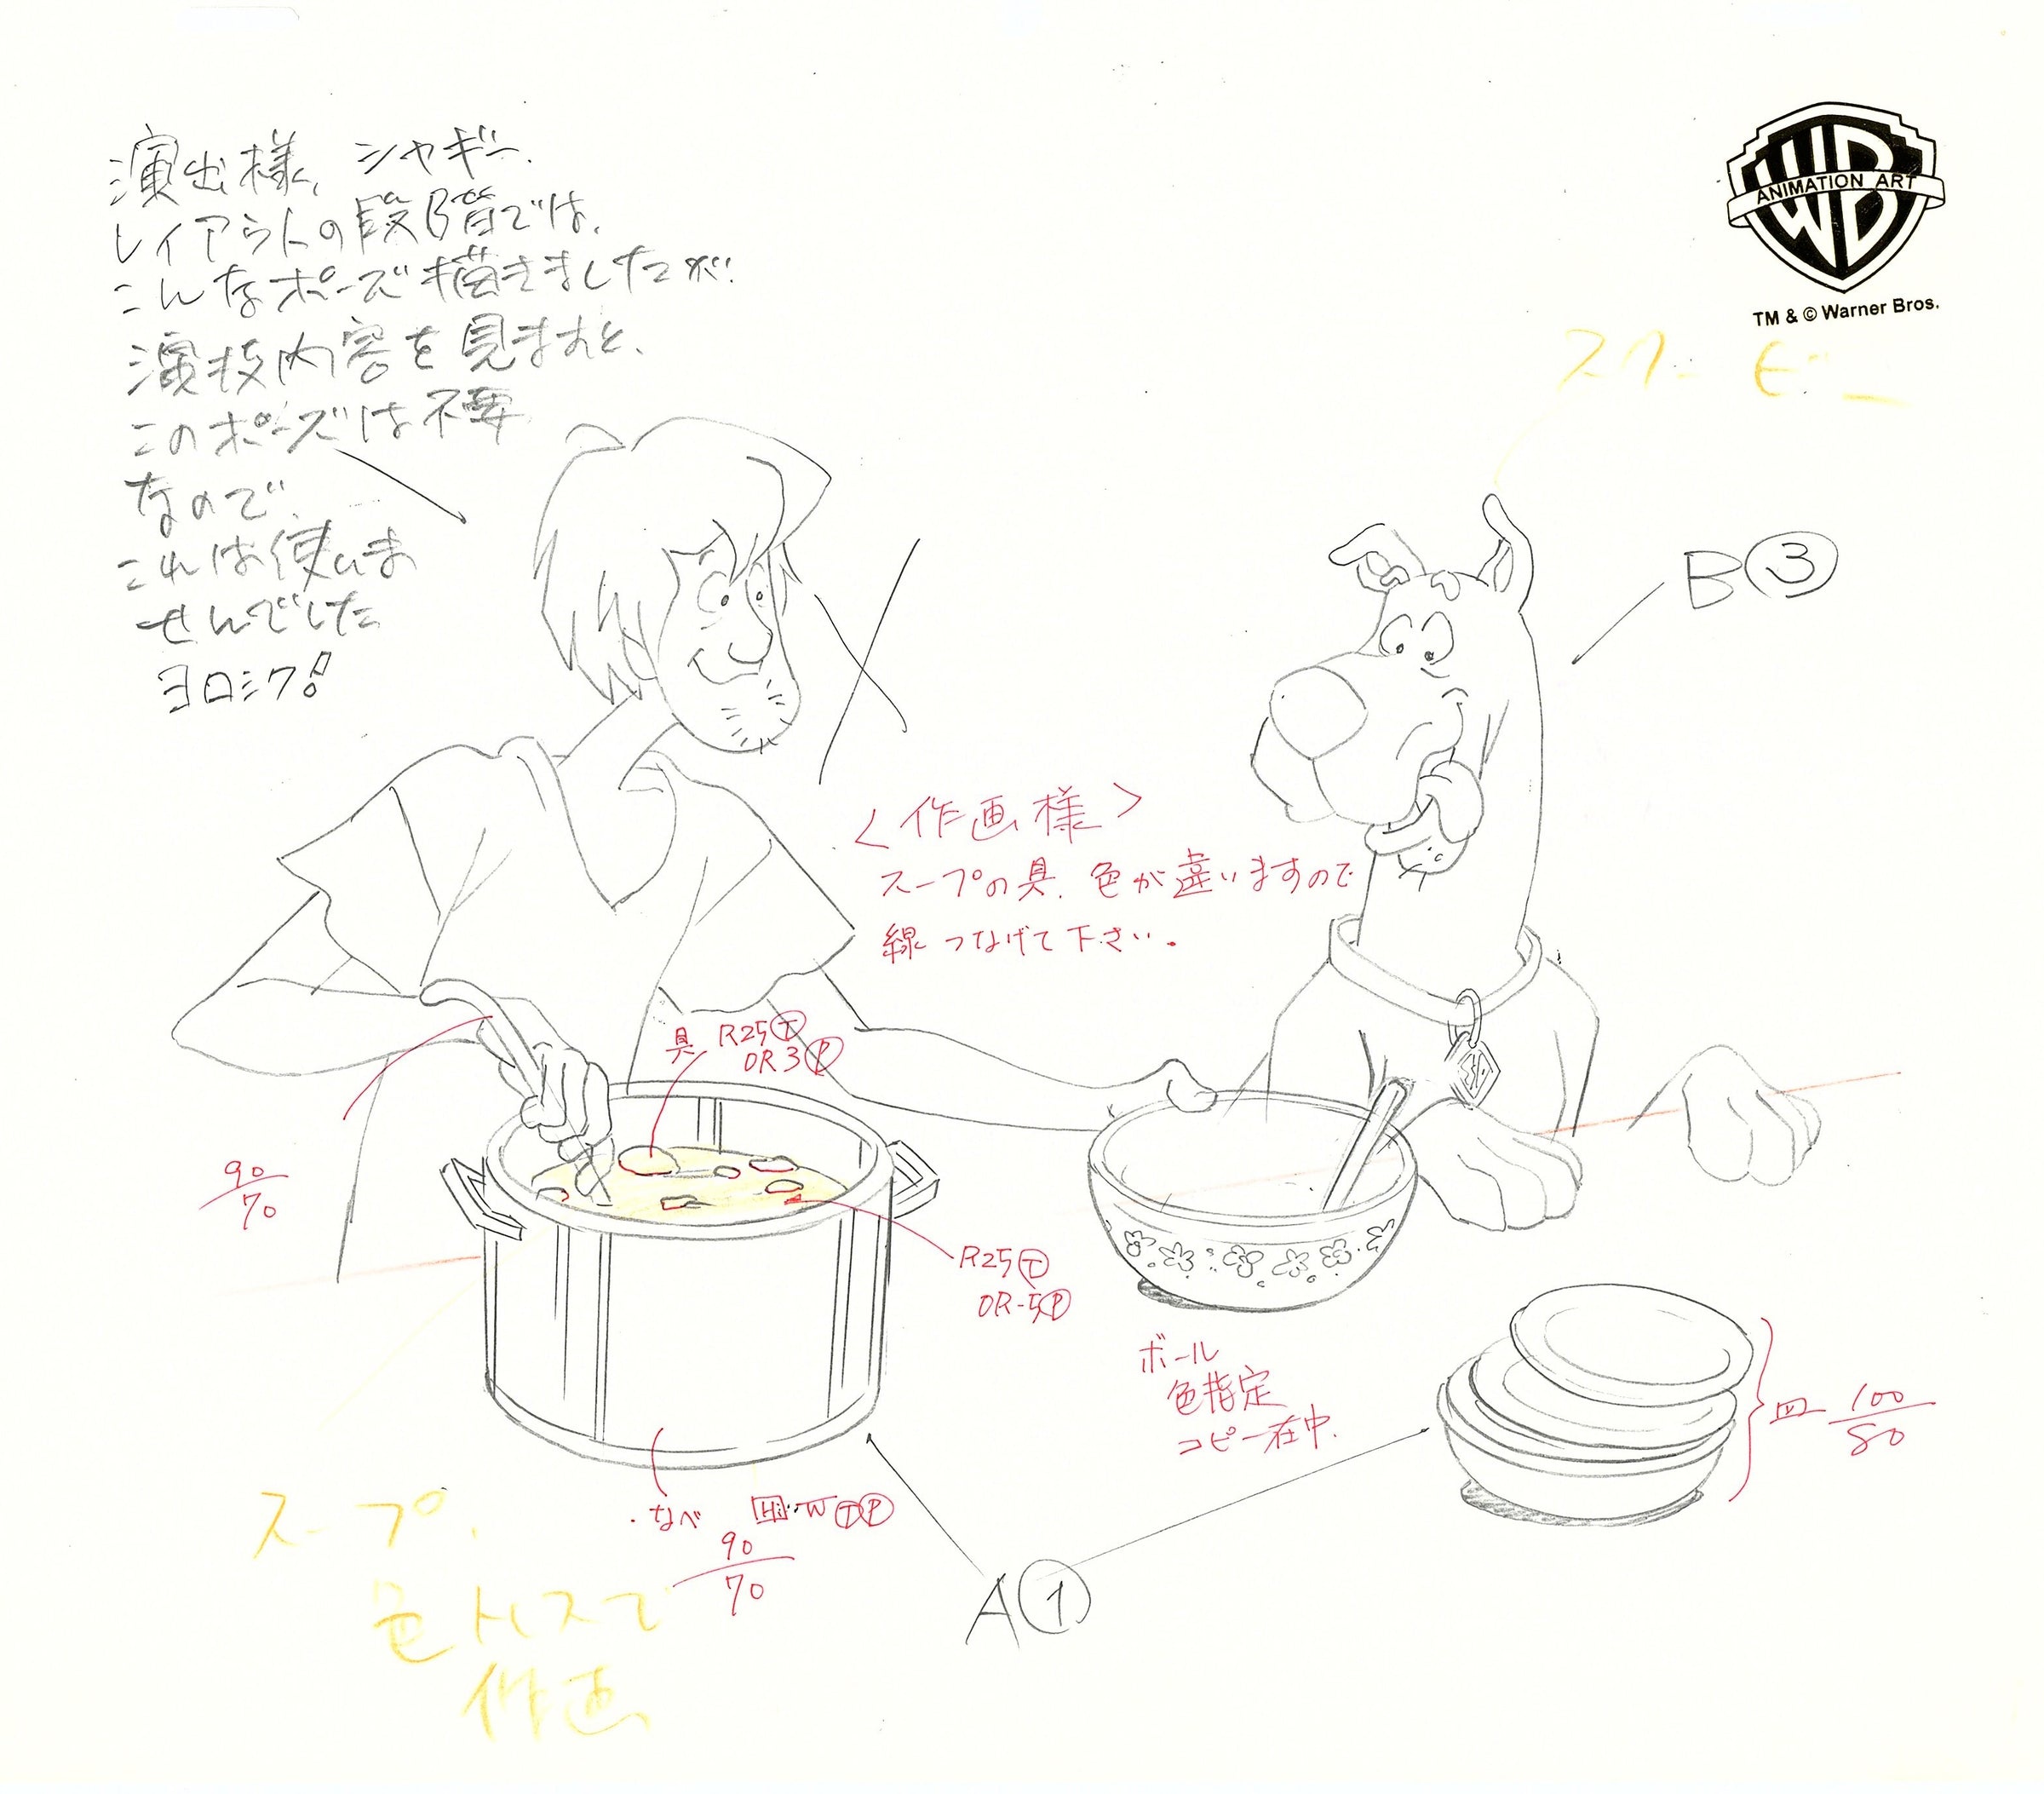 演出様、シャギー、
レイアウトの段階では、
こんなポーズ描きましたが、
演技内容を見ますと、
このポーズは不要
なので、
これは使いま
せんでした
ヨロシク!
WB
ANIMATION ART
TM & © Warner Bros.
スクービー
B③
<作画様>
スープの具、色が違いますので
線つなげて下さい。
具 R25Ⓣ
OR3Ⓟ
90/70
R25Ⓣ
OR-5Ⓟ
ボール
色指定
コピー在中
皿 100/80
なべ
90/70
A①
スープ、
色トレスで
作画